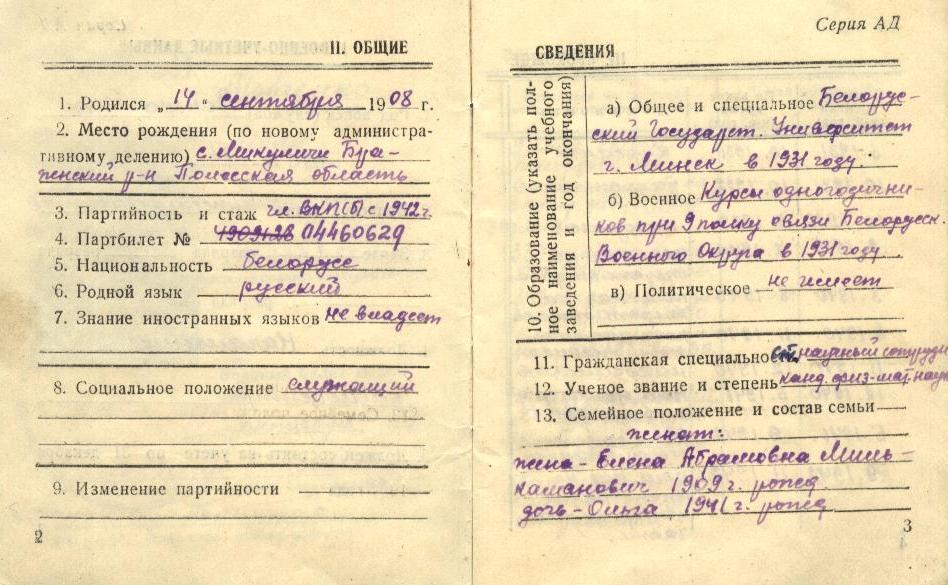 II. ОБЩИЕ
1. Родился „14“ сентября 1908 г.
2. Место рождения (по новому администра-
тивному делению) с. Микуличи Бра-
гинский р-н Полесская область
3. Партийность и стаж чл. ВКП(б) с 1942 г.
4. Партбилет № 4909428 04460629
5. Национальность белорусс
6. Родной язык русский
7. Знание иностранных языков не владеет
8. Социальное положение служащий
9. Изменение партийности
2
Серия АД
СВЕДЕНИЯ
10. Образование (указать пол-
ное наименование учебного
заведения и год окончания)
а) Общее и специальное Белорус-
ский Государст. Университет
г. Минск в 1931 году
б) Военное Курсы одногодични-
ков при 9 полку связи Белорусск.
Военного Округа в 1931 году
в) Политическое не имеет
11. Гражданская специальность научный сотрудн
12. Ученое звание и степень канд. физ-мат. наук
13. Семейное положение и состав семьи
женат:
жена - Елена Абрамовна Миль-
каманович 1909 г. рожд
дочь - Ольга 1941 г. рожд
3